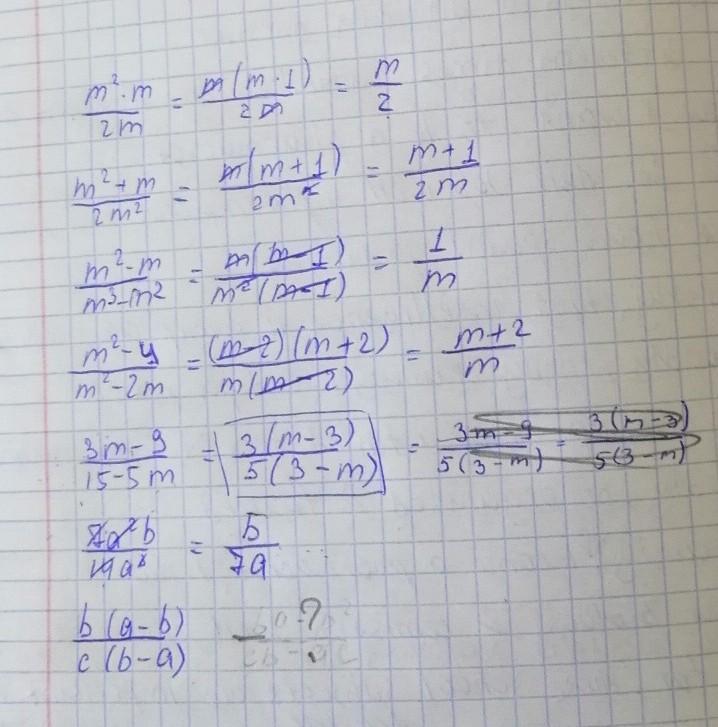 m²·m/2m = m(m·1)/2m = m/2
m²+m/2m² = m(m+1)/2m² = m+1/2m
m²-m/m³-m² = m(m-1)/m²(m-1) = 1/m
m²-4/m²-2m = (m-2)(m+2)/m(m-2) = m+2/m
3m-9/15-5m = 3(m-3)/5(3-m) = 3m-9/5(3-m) = 3(m-3)/5(3-m)
= b/7a
b(a-b)/c(b-a) - ?